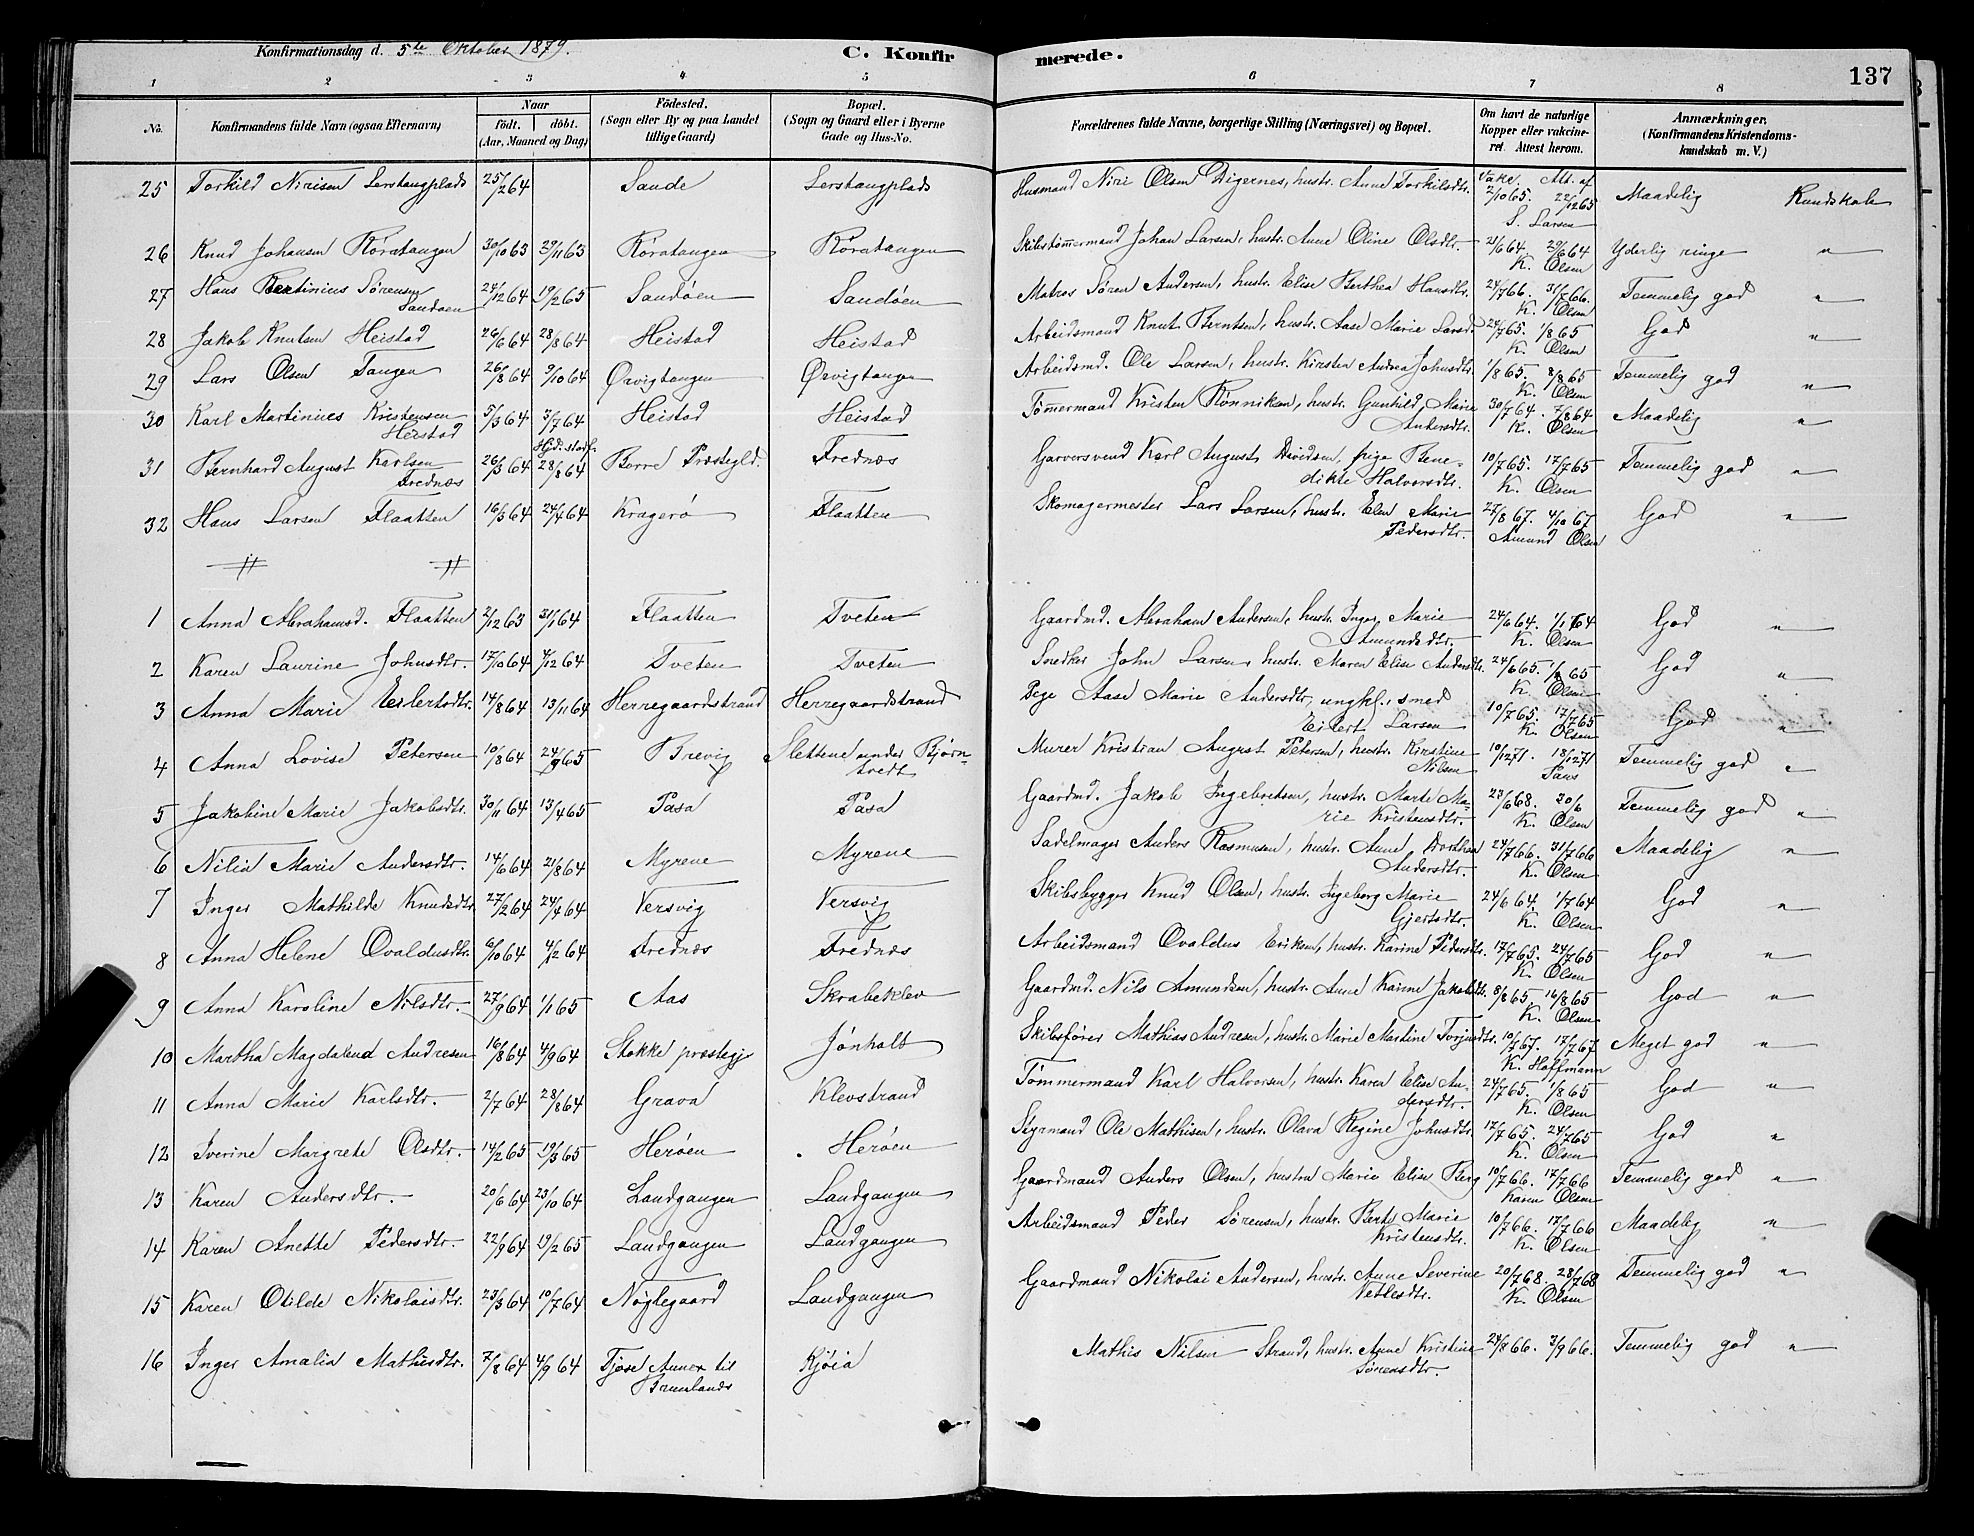 Konfirmationsdag d. 5te Oktober 1879. C. Konfirmerede. 137
1 2 3 4 5 6 7 8
No. Konfirmandens fulde Navn (ogsaa Efternavn) Naar født. døbt. (Aar, Maaned og Dag) Fødested. (Sogn eller By og paa Landet tillige Gaard) Bopæl. (Sogn og Gaard eller i Byerne Gade og Hus-No. Forældrenes fulde Navne, borgerlige Stilling (Næringsvei) og Bopæl. Om havt de naturlige Kopper eller vakcineret. Attest herom. Anmærkninger. (Konfirmandens Kristendomskundskab m. V.)
25 Torkild Nirisen Lerstangplads 25/2 64 Sande Lerstangplads Husmand Niri Olsen Digernes, hustr. Anne Torkilsdtr. Vakc. Att. af 2/10 65. 22/12 65 S. Larsen Maadelig Kundskab
26 Knud Johansen Røratangen 30/10 63 29/11 63 Røratangen Røratangen Skibstømmermand Johan Larsen, hustr. Anne Oline Olsdtr. 21/6 64. 29/6 64 K. Olsen Yderlig ringe "
27 Hans Bertinius Sørensen Sandøen 24/12 64 19/2 65 Sandøen Sandøen Matros Søren Andersen, hustr. Elise Berthea Hansdtr. 24/7 66. 31/7 66. K. Olsen Temmelig god "
28 Jakob Knutsen Heistad 26/6 64 28/8 64 Heistad Heistad Arbeidsmand Knut Berntsen, hustr. Aase Marie Larsd. 24/7 65. 1/8 65 K. Olsen God "
29 Lars Olsen Tangen 26/8 64 9/10 64 Ørvigtangen Ørvigtangen Arbeidsmd. Ole Larsen, hustr. Kirsten Andrea Johnsdtr. 1/8 65. 8/8 65 K. Olsen Temmelig god "
30 Karl Martinius Kristensen Heistad 5/3 64 3/7 64 Heistad Heistad Tømmermand Kristen Rønniksen, hustr. Gunhild Marie Andersdtr. 30/7 64. 7/8 64 K. Olsen Maadelig "
31 Bernhard August Karlsen Frednæs 26/3 64 Hjd. stadf. 28/8 64 Borre Præstegld. Frednæs Garversvend Karl August Davidsen, pige Benedikte Halvorsdtr. 10/7 65. 17/7 65 K. Olsen Temmelig god "
32 Hans Larsen Flaatten 16/3 64 24/4 64 Kragerø Flaatten Skomagermester Lars Larsen, hustr. Elen Marie Pedersdtr. 27/8 67. 4/10 67 Amund Olsen God "
1 Anna Abrahamsd. Flaatten 2/12 63 31/1 64 Flaatten Tveten Gaardmd. Abraham Andersen, hustr. Inger Marie Amundsdtr. 24/6 64. 1/7 64 K. Olsen God "
2 Karen Laurine Johnsdtr. 17/10 64 4/12 64 Tveten Tveten Snedker John Larsen, hustr. Maren Elise Andersdtr. 24/6 65. 65 K. Olsen God "
3 Anna Marie Eilertsdtr. 14/8 64 13/11 64 Herregaardstrand Herregaardstrand Pige Aase Marie Andersdtr., ungkl., smed Eilert Larsen 10/7 65. 17/7 65 K. Olsen God "
4 Anna Lovise Petersen 10/8 64 24/9 65 Brevig Slettene under Bjørntvedt Murer Kristian August Petersen, hustr. Kirstine Nilsen 10/12 71. 18/12 71 Temmelig god "
5 Jakobine Marie Jakobsdtr. 30/11 64 13/4 65 Pasa Pasa Gaardmd. Jakob Ingebretsen, hustr. Marte Marie Kristensdtr. 23/6 68. 30/6 K. Olsen Temmelig god "
6 Nilia Marie Andersdtr. 14/6 64 21/8 64 Myrene Myrene Sadelmager Anders Rasmusen, hustr. Anne Dorthea Andersdtr. 24/7 66. 31/7 66 K. Olsen Maadelig "
7 Inger Mathilde Knudsdtr. 27/2 64 24/4 64 Versvig Versvig Skibsbygger Knud Olsen, hustr. Ingeborg Marie Gjertsdtr. 24/6 64. 1/7 64 K. Olsen God "
8 Anna Helene Ovaldusdtr. 6/10 64 4/12 64 Frednæs Frednæs Arbeidsmand Ovaldus Eriksen, hustr. Karine Pedersdtr. 17/7 65. 24/7 65 K. Olsen God "
9 Anna Karoline Nilsdtr. 27/9 64 1/1 65 Aas Skrabeklev Gaardmd. Nils Amundsen, hustr. Anne Karine Jakobsdtr. 8/8 65. 16/8 65 K. Olsen God "
10 Martha Magdalena Andresen 16/8 64 4/9 64 Stokke præstegj. Jønholt Skibsfører Mathias Andresen, hustr. Marie Martine Torjusdtr. 10/7 67. 17/7 67 K. Hoffmann Meget god "
11 Anna Marie Karlsdtr. 2/7 64 28/8 64 Grava Klevstrand Tømmermand Karl Halvorsen, hustr. Karen Elise Andersdtr. 24/7 65. 1/8 65 K. Olsen God "
12 Iverine Margrete Olsdtr. 14/2 65 19/3 65 Herøen Herøen Styrmand Ole Mathisen, hustr. Olava Regine Johnsdtr. 17/7 65. 24/7 65 K. Olsen God "
13 Karen Andersdtr. 20/6 64 23/10 64 Landgangen Landgangen Gaardmand Anders Olsen, hustru Marie Elise Berg 10/7 66. 17/7 66 Karen Olsen Temmelig god "
14 Karen Anette Pedersdtr. 22/9 64 19/2 65 Landgangen Landgangen Arbeidsmand Peder Sørensen, hustr. Berte Marie Kristensdtr. 10/7 66. 17/7 66 K. Olsen Maadelig "
15 Karen Otilde Nikolaisdtr. 23/3 64 10/7 64 Nøglegaard Landgangen Gaardmand Nikolai Andersen, hustr. Anne Severine Vetlesdtr. 20/7 68. 28/7 68 K. Olsen Temmelig god "
16 Inger Amalia Mathisdtr. 7/8 64 4/9 64 Tjøse Annex til Brunlanæs Kjøia Mathis Nilsen Strand, hustr. Anne Kristine Sørensdtr. 24/8 66. 3/9 66. Temmelig god "